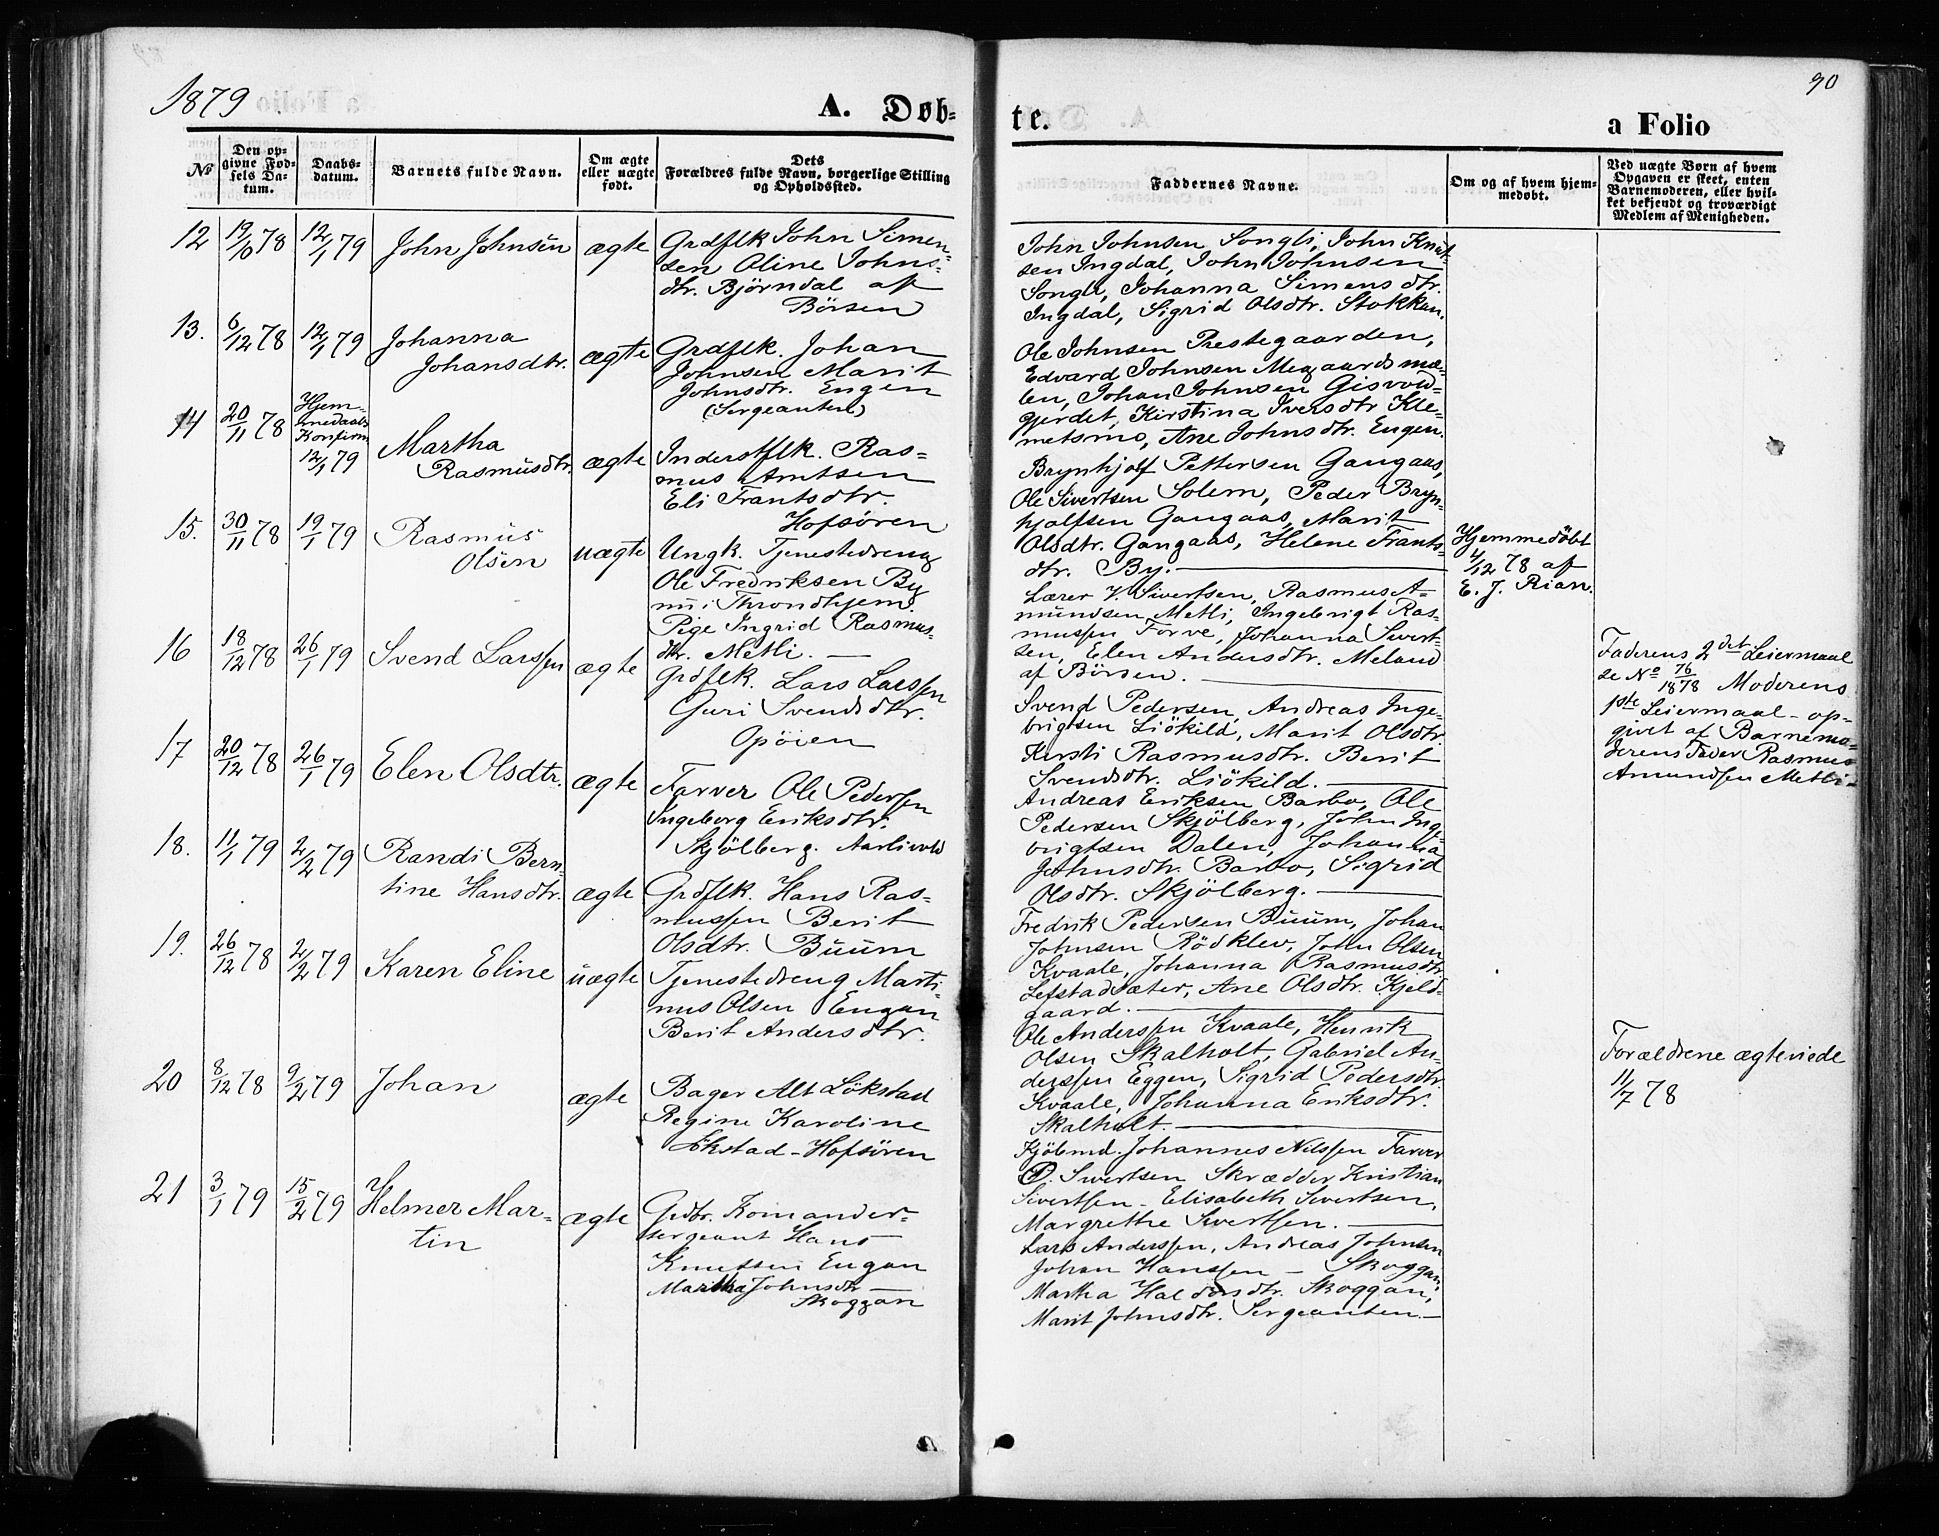 1879
A. Døb-
№
Den op-
givne Fød-
sels Da-
tum.
Daabs-
datum.
Barnets fulde Navn.
Om ægte
eller uægte
født.
Dets
Forældres fulde Navn, borgerlige Stilling
og Opholdssted.
12 19/10 78 12/1 79 John Johnsen ægte Grdflk John Simen-
sen Oline Johns-
dtr. Björndal af
Börsen
13. 6/12 78 12/1 79 Johanna
Johansdtr. ægte Grdflk. Johan
Johnsen Marit
Johnsdtr. Engen
(Sergeanten)
14 20/11 78 Hjem-
medaabs
Konfirm
12/1 79 Martha
Rasmusdtr. ægte Inderstflk. Ras-
mus Arntsen
Eli Frantsdtr.
Hofsören
15. 30/11 78 19/1 79 Rasmus
Olsen uægte Ungk. Tjenestedreng
Ole Fredriksen By
nu i Throndhjem.
Pige Ingrid Rasmus-
dtr. Metli. —
16 18/12 78 26/1 79 Svend Larssen ægte Grdflk. Lars Larssen
Guri Svendsdtr.
Opöien
17 20/12 78 26/1 79 Elen Olsdtr. ægte Farver Ole Pederssen
Ingeborg Eriksdtr.
Skjölberg. Aarlivold
18. 11/1 79 2/2 79 Randi Bern-
tine Hansdtr. ægte Grdflk. Hans Ras-
mussen Berit
Olsdtr. Buum
19. 26/12 78 2/2 79 Karen Eline uægte Tjenestedreng Marti-
nus Olsen Engan
Berit Andersdtr.
20 8/12 78 9/2 79 Johan ægte Bager Alt Lökstad
Regine Karoline
Lökstad - Hofsören
21 3/1 79 15/2 79 Helmer Mar-
tin ægte Grdbr. Komander-
sergeant Hans
Knutssen Engan
Martha Johnsdtr —
Skoggan
90
te.
a Folio
Faddernes Navne.
Om og af hvem hjem-
medøbt.
Ved uægte Børn af hvem
Opgaven er skeet, enten
Barnemoderen, eller hvil-
ket bekjendt og troværdigt
Medlem af Menigheden.
John Johnsen Songli, John Knut-
sen Ingdal, John Johnsen
Songli, Johanna Simensdtr.
Ingdal, Sigrid Olsdtr. Stokkan.
Ole Johnsen Prestegaarden,
Edvard Johnsen Megaardsmæ-
len, Johan Johnsen Gisvold-
gjerdet, Kirstina Iversdtr Kle-
metsmo, Ane Johnsdtr. Engen.
Brynhjolf Pettersen Gangaas,
Ole Sivertsen Solem, Peder Bryn-
hjolfsen Gangaas, Marit
Olsdtr. Gangaas, Helene Frants-
dtr. By. —
Hjemmedöbt
4/12 78 af
E. J. Rian.
Lærer V. Sivertsen, Rasmus A-
mundsen Metli, Ingebrigt Ras-
mussen Forve, Johanna Sivert-
sen, Elen Andersdtr. Meland
af Börsen. —
Faderens 2det Leiermaal
se No 76/1878 Moderens
1ste Leiermaal - op-
givet af Barnemo-
derens Fader Rasmus
Amundsen Metli -
Svend Pedersen, Andreas Inge-
brigtsen Liökild, Marit Olsdtr.
Kirsti Rasmusdtr. Berit
Svendsdtr. Liökild. —
Andreas Eriksen Barbo, Ole
Pedersen Skjölberg, John Inge-
brigtsen Dalen, Johanna
Johnsdtr. Barbo, Sigrid
Olsdtr. Skjölberg. —
Fredrik Pedersen Buum, Johan
Johnsen Rödklev, John Olsen
Kvaale, Johanna Rasmusdtr.
Lefstadsæter, Ane Olsdtr. Kjeld-
gaard. —
Ole Anderssen Kvaale, Henrik
Olsen Skalholt, Gabriel An-
derssen Eggen, Sigrid Pedersdtr.
Kvaale, Johanna Eriksdtr.
Skalholt. —
Forældrene ægteviede
11/7 78
Kjöbmd. Johannes Nilssen Farver
O. Sivertsen Skrædder Kristian
Sivertsen - Elisabeth Sivertsen,
Margrethe Sivertsen. —
Lars Anderssen, Andreas Johnsen
Johan Hanssen - Skoggan,
Martha Haldorsdtr. Skoggan,
Marit Johnsdtr. Sergeanten. —